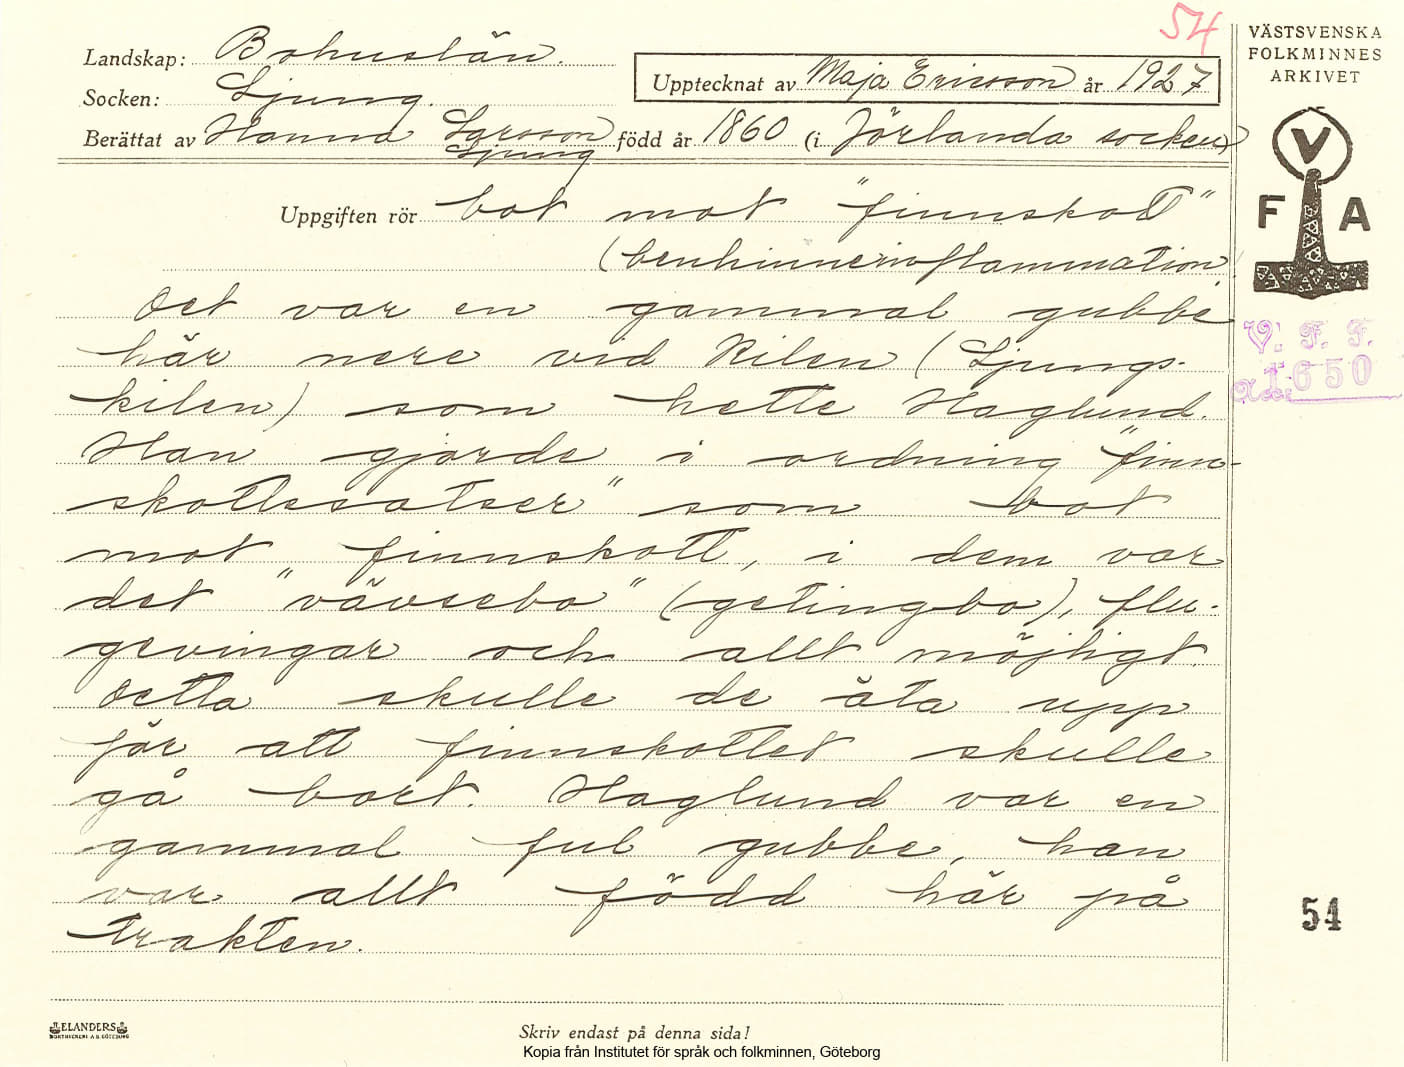 54
Landskap: Bohuslän.
Socken: Ljung.
Berättat av Hanna Larsson
Ljung
Upptecknat av Maja Ericsson år 1927
född år 1860 (i Jörlanda socken)
Uppgiften rör bot mot "finnskott"
(benhinneinflammation)
Det var en gammal gubbe
här nere vid Kilen (Ljungs-
kilen) som hette Haglund.
Han gjorde i ordning "finn-
skottssatser" som bot
mot finnskott, i dem var
det "vävsebo" (getingbo), flu-
gevingar och allt möjligt.
Detta skulle de äta upp
för att finnskottet skulle
gå bort. Haglund var en
gammal ful gubbe, han
var allt född här på
trakten.
ELANDERS
BOKTRYCKERI A.B. GÖTEBORG
Skriv endast på denna sida!
Kopia från Institutet för språk och folkminnen, Göteborg
VÄSTSVENSKA
FOLKMINNES
ARKIVET
V
F A
V. F. F.
Acc: 1650
54